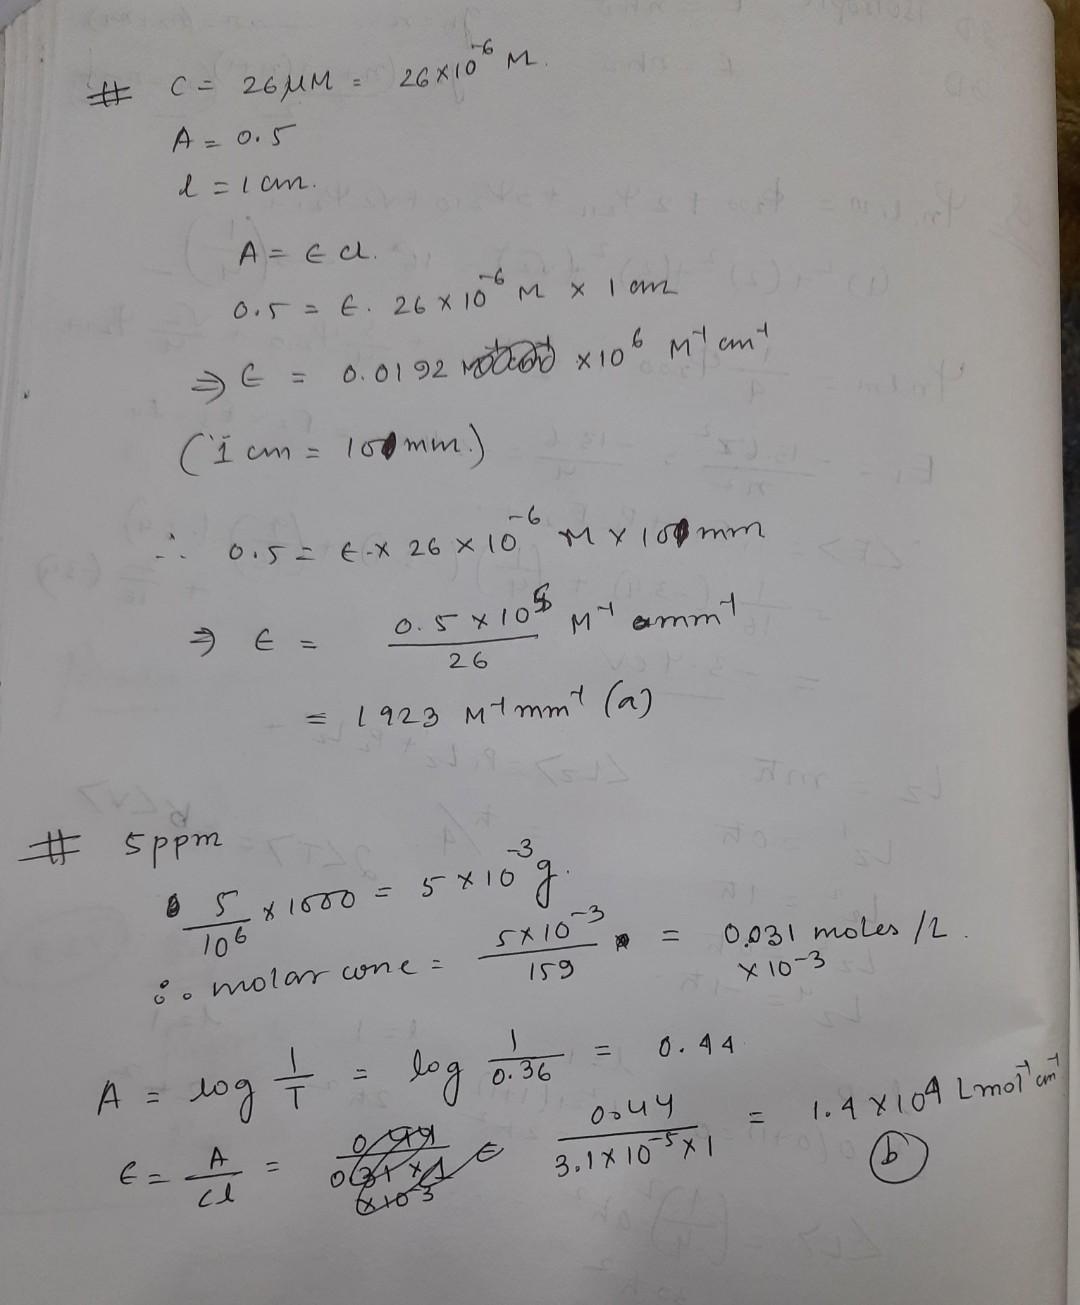 # C = 26 μM = 26×10⁻⁶ M.
A = 0.5
l = 1 cm.
A = ϵ cl.
0.5 = ϵ. 26 × 10⁻⁶ M × 1 cm
⇒ ϵ = 0.0192 × 10⁶ M⁻¹ cm⁻¹
(1 cm = 10 mm.)
∴ 0.5 = ϵ × 26 × 10⁻⁶ M × 10 mm
⇒ ϵ = 0.5 × 10⁵ / 26 M⁻¹ mm⁻¹
= 1923 M⁻¹ mm⁻¹ (a)
# 5 ppm
5/10⁶ × 1000 = 5 × 10⁻³ g.
∴ molar conc = 5×10⁻³ / 159 = 0.031 moles /L.
× 10⁻³
A = log 1/T = log 1/0.36 = 0.44
ϵ = A/cl = 0.44 / 3.1 × 10⁻⁵ × 1 = 1.4 × 10⁴ L mol⁻¹ cm⁻¹
(b)